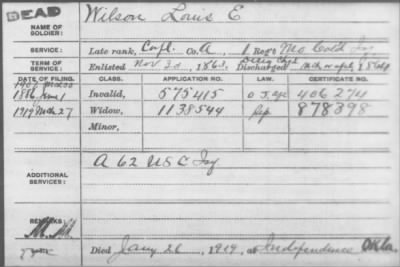 DEAD
NAME OF SOLDIER: Wilson Louis E
SERVICE: Late rank, Corpl. Co. A, 1 Reg't Mo Cold Inf
TERM OF SERVICE: Enlisted Nov 23, 1863. Discharged
DATE OF FILING. CLASS. APPLICATION NO. LAW. CERTIFICATE NO.
1886 June 1 Invalid, 575415 406274
1919 Mch 27 Widow, 1138544 878398
Minor,
ADDITIONAL SERVICES: A 62 USC Inf
REMARKS:
Died Jany 26, 1919, at Independence Okla.